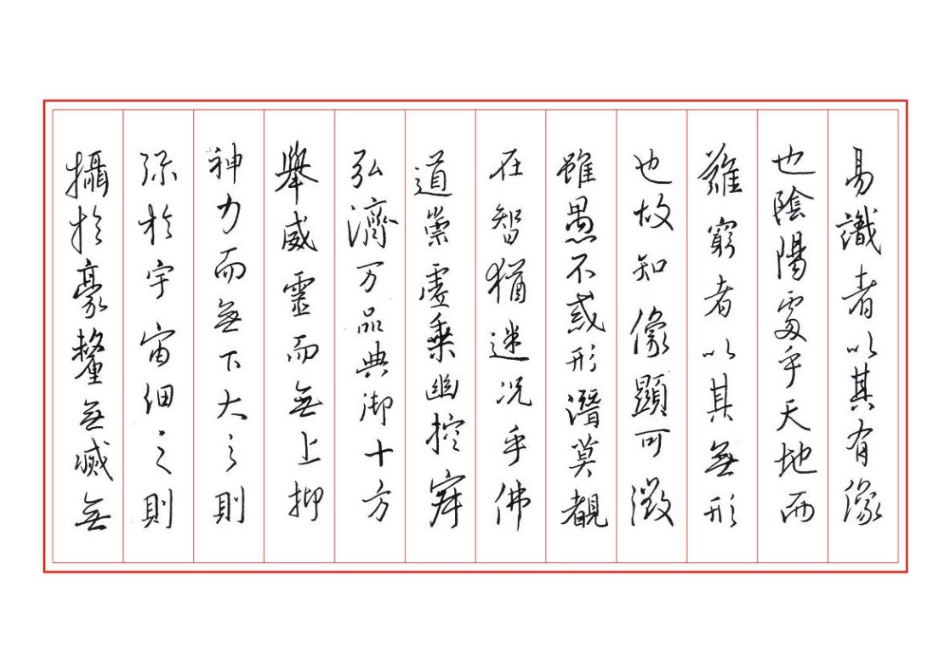 易識者以其有像
也陰陽處乎天地而
難窮者以其無形
也故知像顯可徵
雖愚不惑形潛莫覩
在智猶迷况乎佛
道崇虛乘幽控寂
弘濟万品典御十方
舉威靈而無上抑
神力而無下大之則
弥於宇宙細之則
攝於豪釐無滅無